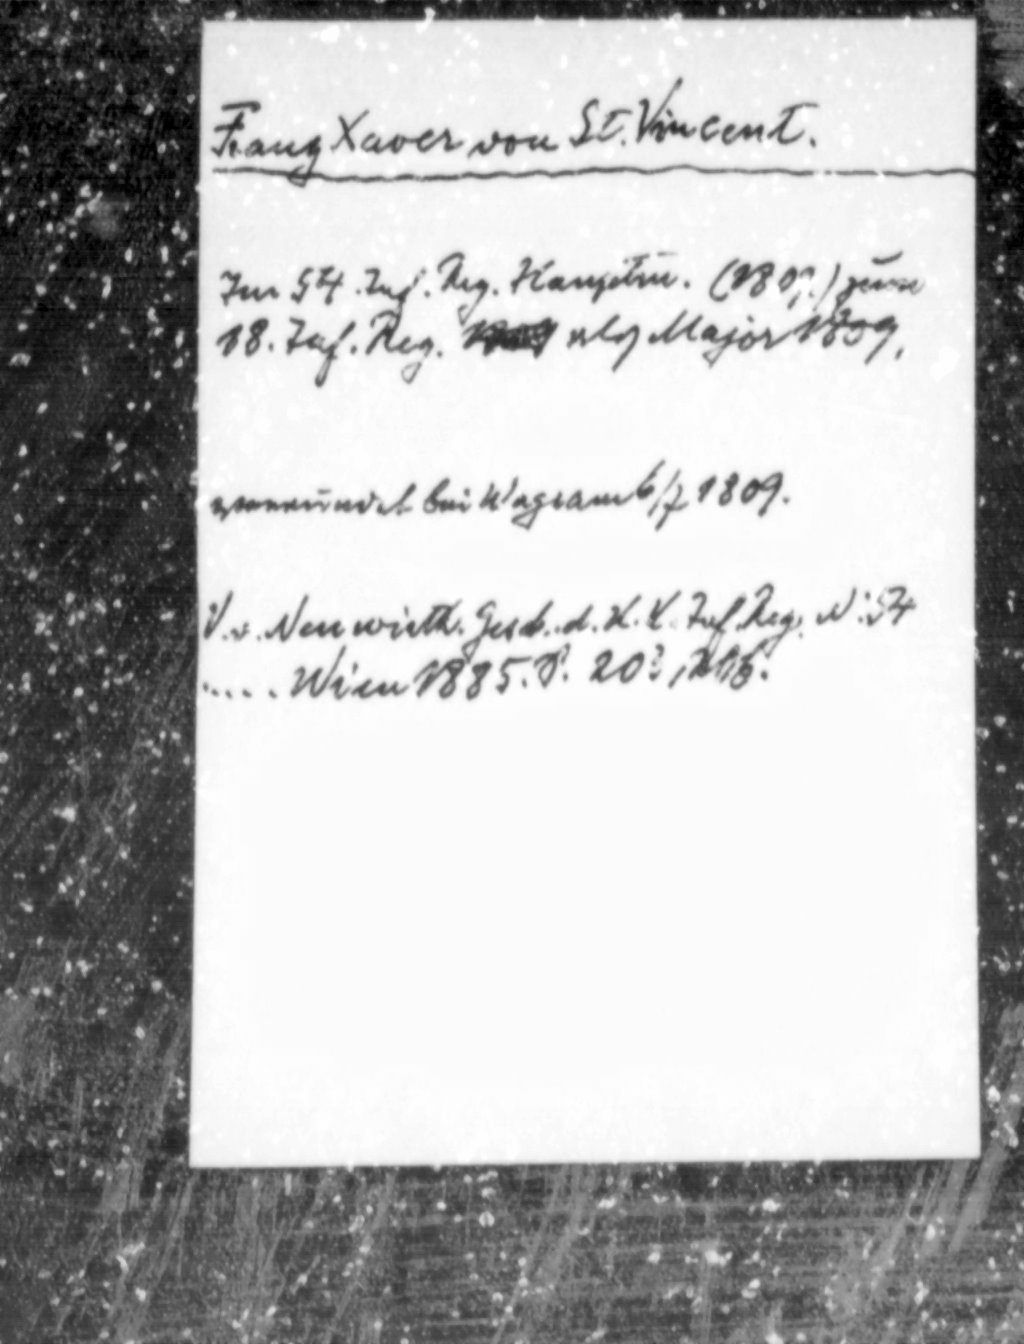 Franz Xaver von St. Vincent.
Im 54. Inf. Reg. Hauptm. (1809.) zum
18. Inf. Reg. als Major 1809,
verwundet bei Wagram 6/7 1809.
V. v. Neuwirth. Gesch. d. K. K. Inf. Reg. N: 54
..... Wien 1885. P.